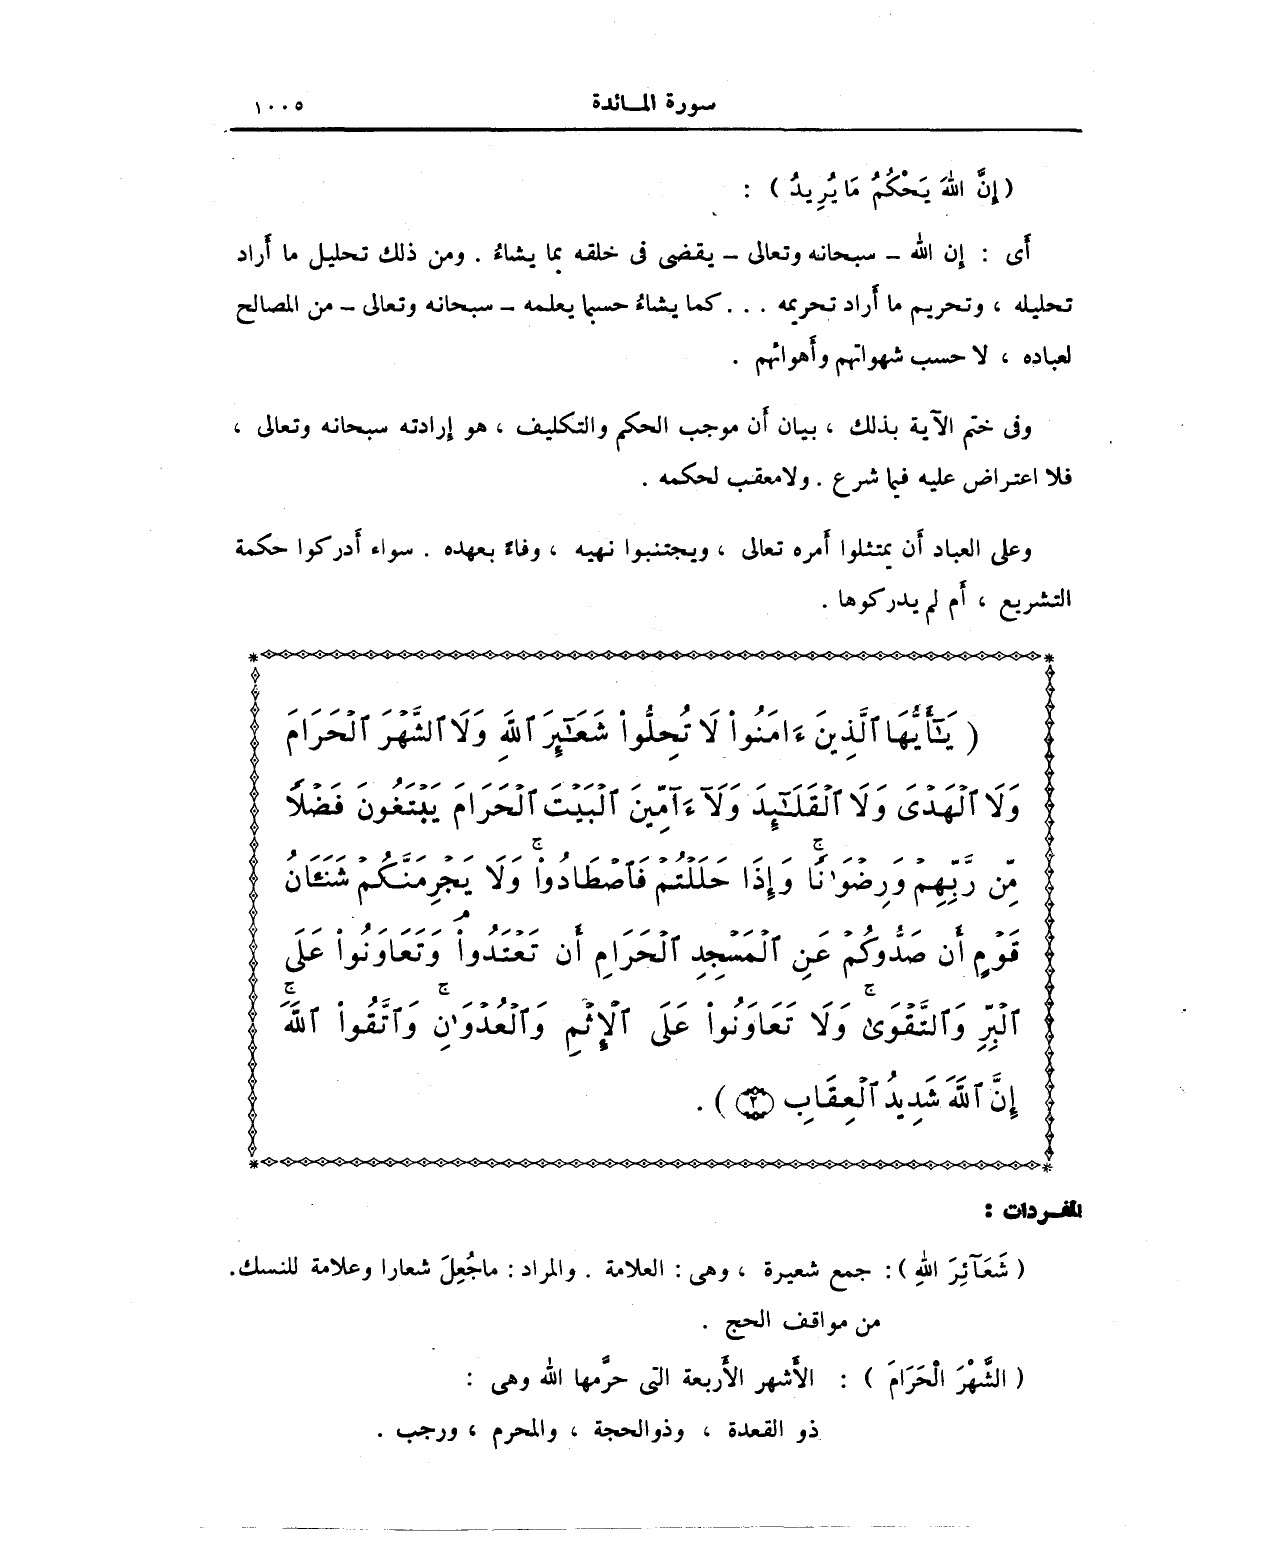 سورة المائدة ١٠٠٥
( إِنَّ اللهَ يَحْكُمُ مَا يُرِيدُ ) :
أَى : إن الله – سبحانه وتعالى – يقضى فى خلقه بما يشاءُ . ومن ذلك تحليل ما أَراد
تحليله ، وتحريم ما أَراد تحريمه ... كما يشاءُ حسبما يعلمه – سبحانه وتعالى – من المصالح
لعباده ، لا حسب شهواتهم وأَهوائهم .
وفى ختم الآية بذلك ، بيان أَن موجب الحكم والتكليف ، هو إرادته سبحانه وتعالى ،
فلا اعتراض عليه فيما شرع . ولا معقب لحكمه .
وعلى العباد أَن يمتثلوا أَمره تعالى ، ويجتنبوا نهيه ، وفاءً بعهده . سواء أَدركوا حكمة
التشريع ، أَم لم يدركوها .
( يَـٰٓأَيُّهَا ٱلَّذِينَ ءَامَنُوا۟ لَا تُحِلُّوا۟ شَعَـٰٓئِرَ ٱللَّهِ وَلَا ٱلشَّهْرَ ٱلْحَرَامَ
وَلَا ٱلْهَدْىَ وَلَا ٱلْقَلَـٰٓئِدَ وَلَآ ءَآمِّينَ ٱلْبَيْتَ ٱلْحَرَامَ يَبْتَغُونَ فَضْلًا
مِّن رَّبِّهِمْ وَرِضْوَٰنًا ۚ وَإِذَا حَلَلْتُمْ فَٱصْطَادُوا۟ ۚ وَلَا يَجْرِمَنَّكُمْ شَنَـَٔانُ
قَوْمٍ أَن صَدُّوكُمْ عَنِ ٱلْمَسْجِدِ ٱلْحَرَامِ أَن تَعْتَدُوا۟ ۘ وَتَعَاوَنُوا۟ عَلَى
ٱلْبِرِّ وَٱلتَّقْوَىٰ ۖ وَلَا تَعَاوَنُوا۟ عَلَى ٱلْإِثْمِ وَٱلْعُدْوَٰنِ ۚ وَٱتَّقُوا۟ ٱللَّهَ ۚ
إِنَّ ٱللَّهَ شَدِيدُ ٱلْعِقَابِ ٢ ) .
المفردات :
( شَعَآئِرَ اللهِ ) : جمع شعيرة ، وهى : العلامة . والمراد : ماجُعِلَ شعارا وعلامة للنسك.
من مواقف الحج .
( الشَّهْرَ الْحَرَامَ ) : الأَشهر الأَربعة التى حرَّمها الله وهى :
ذو القعدة ، وذوالحجة ، والمحرم ، ورجب .